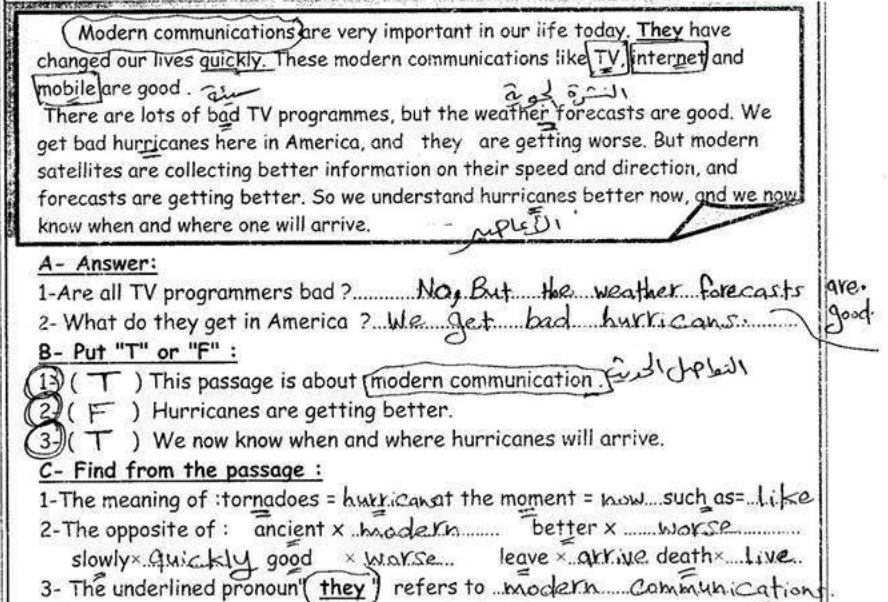 Modern communications are very important in our life today. They have
changed our lives quickly. These modern communications like TV, internet and
mobile are good . سيئة النشرة الجوية
There are lots of bad TV programmes, but the weather forecasts are good. We
get bad hurricanes here in America, and they are getting worse. But modern
satellites are collecting better information on their speed and direction, and
forecasts are getting better. So we understand hurricanes better now, and we now
know when and where one will arrive. الأعاصير
A- Answer:
1-Are all TV programmers bad ?............No, But the weather forecasts are good.
2- What do they get in America ?..We get bad hurricans.
B- Put "T" or "F" :
1- ( T ) This passage is about modern communication . التواصل الحديثة
2- ( F ) Hurricanes are getting better.
3- ( T ) We now know when and where hurricanes will arrive.
C- Find from the passage :
1-The meaning of :tornadoes = hurricans at the moment = now....such as=..like
2-The opposite of : ancient x ..modern....... better x ......worse............
slowly× quickly good × worse... leave × arrive death×....live..
3- The underlined pronoun" they " refers to ..modern......communications.